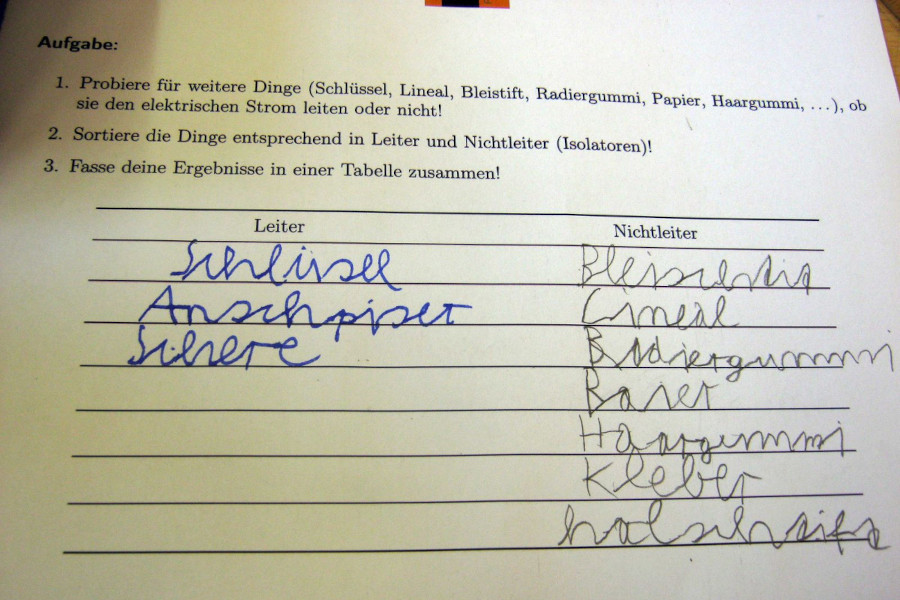 Aufgabe:
1. Probiere für weitere Dinge (Schlüssel, Lineal, Bleistift, Radiergummi, Papier, Haargummi, ...), ob
sie den elektrischen Strom leiten oder nicht!
2. Sortiere die Dinge entsprechend in Leiter und Nichtleiter (Isolatoren)!
3. Fasse deine Ergebnisse in einer Tabelle zusammen!
Leiter Nichtleiter
Schlüsel
Anschpiser Lineal
Schere Radiergummi
Haargummi
Kleber